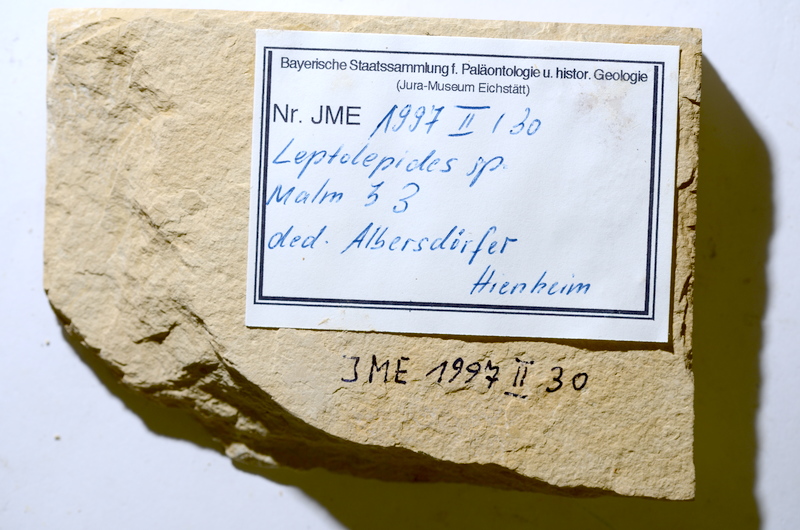 Bayerische Staatssammlung f. Paläontologie u. histor. Geologie
(Jura-Museum Eichstätt)
Nr. JME 1997 II / 30
Leptolepides sp.
Malm ζ 3
ded. Albersdörfer
Hienheim
JME 1997 II 30